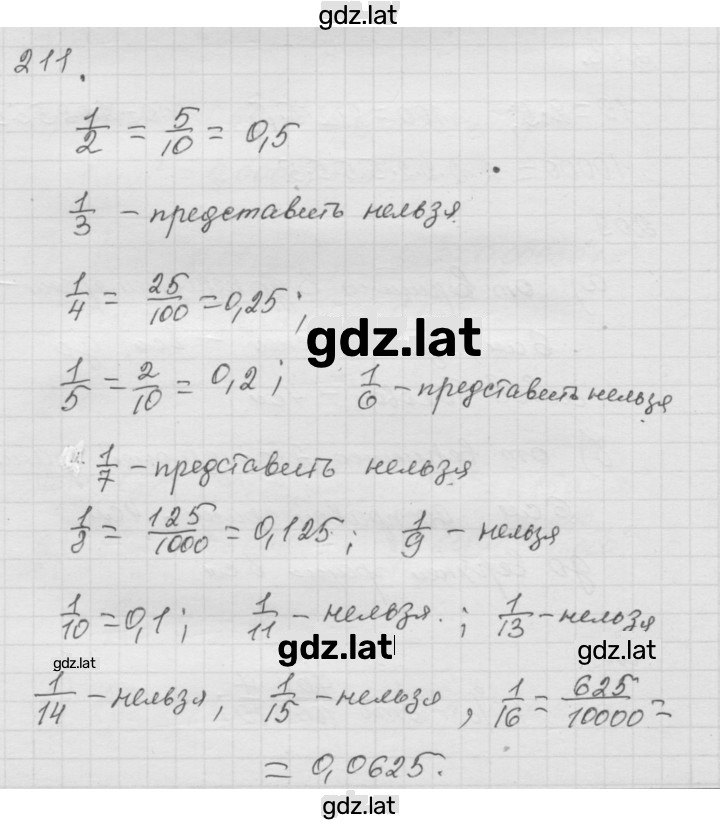 gdz.lat
211.
1/2 = 5/10 = 0,5
1/3 - представить нельзя
1/4 = 25/100 = 0,25;
gdz.lat
1/5 = 2/10 = 0,2; 1/6 - представить нельзя
1/7 - представить нельзя
1/8 = 125/1000 = 0,125; 1/9 - нельзя
1/10 = 0,1; 1/11 - нельзя. ; 1/13 - нельзя
gdz.lat
gdz.lat
gdz.lat
1/14 - нельзя, 1/15 - нельзя, 1/16 = 625/10000 =
= 0,0625.
gdz.lat